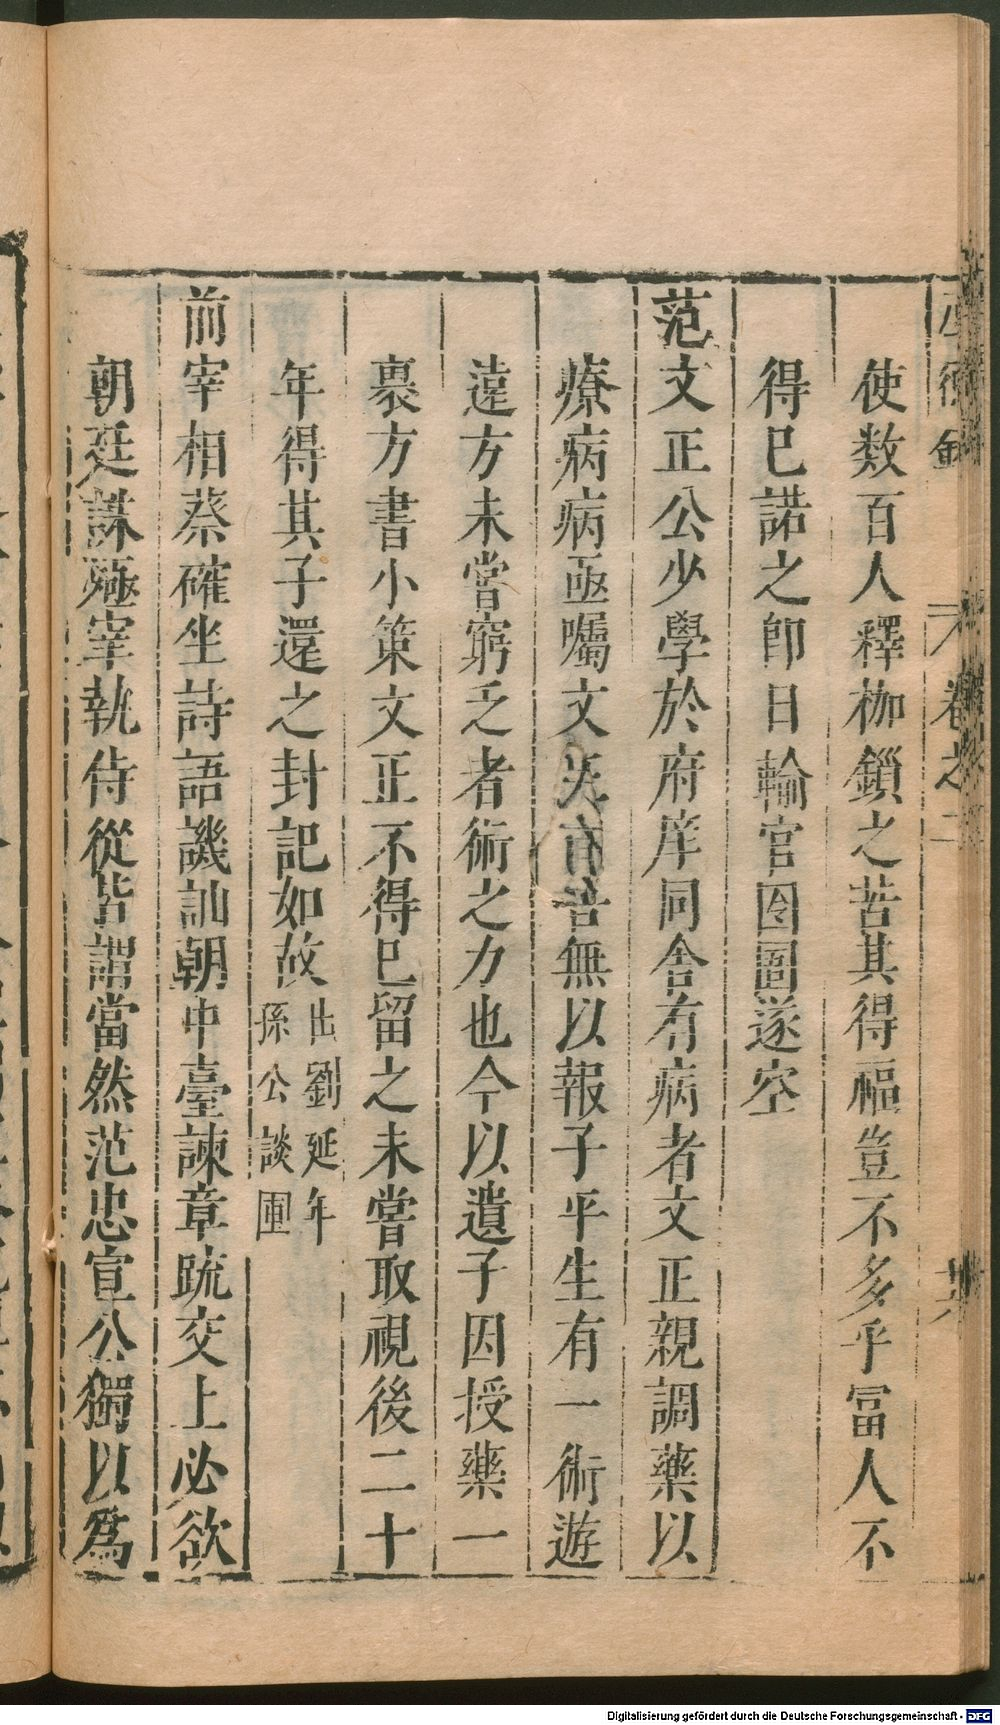 使数百人釋枷鎖之苦其得福豈不多乎冨人不
得已諾之即日輸官囹圄遂空
范文正公少學於府庠同舍有病者文正親調藥以
療病病亟囑文 無以報子平生有一術遊
遠方未嘗窮乏者術之力也今以遺子因授藥一
裹方書小策文正不得已留之未嘗取視後二十
年得其子還之封記如故 出劉延年
孫公談圃
前宰相蔡確坐詩語譏訕朝中臺諫章疏交上必欲
朝廷誅殛宰執侍從皆謂當然范忠宣公獨以爲
卷之二
Digitalisierung gefördert durch die Deutsche Forschungsgemeinschaft - DFG